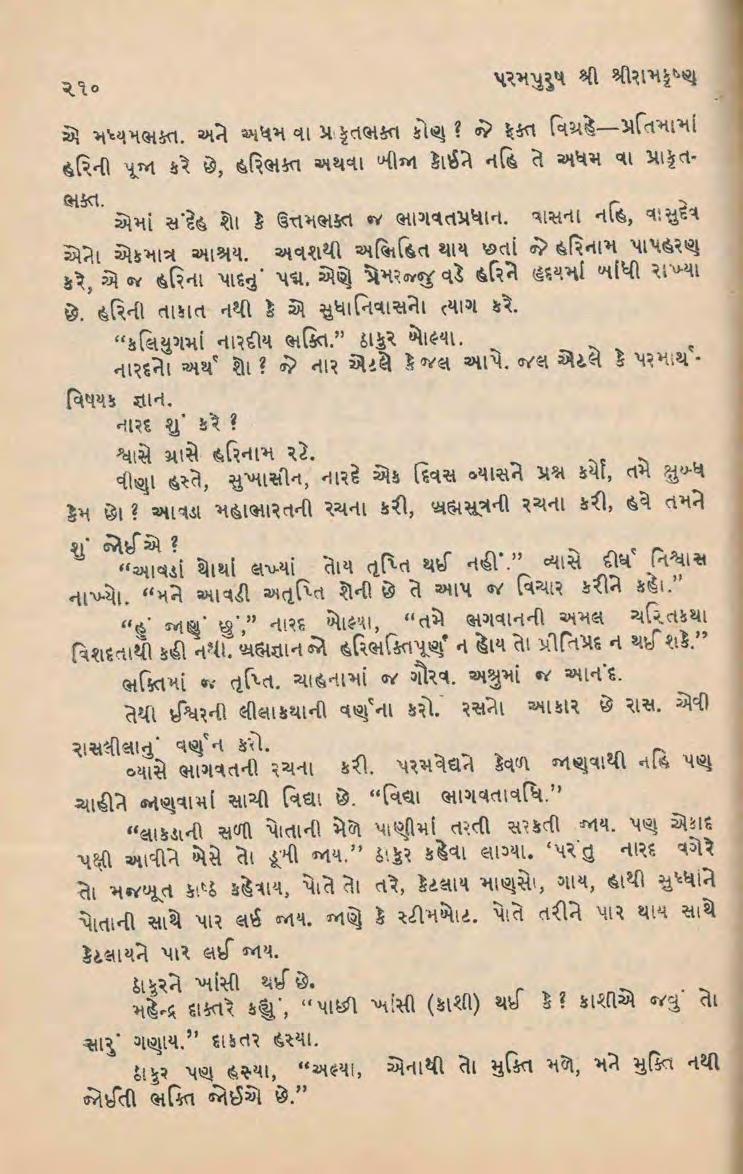 ૨૧૦
પરમપુરુષ શ્રી શ્રીરામકૃષ્ણ
એ મધ્યમભક્ત. અને અધમ વા પ્રાકૃતભક્ત કોણ ? જે ફક્ત વિગ્રહે—પ્રતિમામાં
હરિની પૂજા કરે છે, હરિભક્ત અથવા બીજા કોઈને નહિ તે અધમ વા પ્રાકૃત-
ભક્ત.
એમાં સંદેહ શો કે ઉત્તમભક્ત જ ભાગવતપ્રધાન. વાસના નહિ, વાસુદેવ
એનો એકમાત્ર આશ્રય. અવશથી અભિહિત થાય છતાં જે હરિનામ પાપહરણ
કરે, એ જ હરિના પાદનું પદ્મ. એણે પ્રેમરજ્જુ વડે હરિને હૃદયમાં બાંધી રાખ્યા
છે. હરિની તાકાત નથી કે એ સુધાનિવાસનો ત્યાગ કરે.
“કલિયુગમાં નારદીય ભક્તિ.” ઠાકુર બોલ્યા.
નારદનો અર્થ શો ? જે નાર એટલે કે જલ આપે. જલ એટલે કે પરમાર્થ-
વિષયક જ્ઞાન.
નારદ શું કરે ?
શ્વાસે ગ્રાસે હરિનામ રટે.
વીણા હસ્તે, સુખાસીન, નારદે એક દિવસ વ્યાસને પ્રશ્ન કર્યો, તમે ક્ષુબ્ધ
કેમ છો ? આવડા મહાભારતની રચના કરી, બ્રહ્મસૂત્રની રચના કરી, હવે તમને
શું જોઈએ ?
“આવડાં થોથાં લખ્યાં તોય તૃપ્તિ થઈ નહીં.” વ્યાસે દીર્ઘ નિશ્વાસ
નાખ્યો. “મને આવડી અતૃપ્તિ શેની છે તે આપ જ વિચાર કરીને કહો.”
“હું જાણું છું,” નારદ બોલ્યા, “તમે ભગવાનની અમલ ચરિતકથા
વિશદતાથી કહી નથી. બ્રહ્મજ્ઞાન જો હરિભક્તિપૂર્ણ ન હોય તો પ્રીતિપ્રદ ન થઈ શકે.”
ભક્તિમાં જ તૃપ્તિ. ચાહનામાં જ ગૌરવ. અશ્રુમાં જ આનંદ.
તેથી ઈશ્વરની લીલાકથાની વર્ણના કરો. રસનો આકાર છે રાસ. એવી
રાસલીલાનું વર્ણન કરો.
વ્યાસે ભાગવતની રચના કરી. પરમવેદ્યને કેવળ જાણવાથી નહિ પણ
ચાહીને જાણવામાં સાચી વિદ્યા છે. “વિદ્યા ભાગવતાવધિ.”
“લાકડાની સળી પોતાની મેળે પાણીમાં તરતી સરકતી જાય. પણ એકાદ
પક્ષી આવીને બેસે તો ડૂબી જાય.” ઠાકુર કહેવા લાગ્યા. ‘પરંતુ નારદ વગેરે
તો મજબૂત કાષ્ઠ કહેવાય, પોતે તો તરે, કેટલાય માણસો, ગાય, હાથી સુધ્ધાંને
પોતાની સાથે પાર લઈ જાય. જાણે કે સ્ટીમબોટ. પોતે તરીને પાર થાય સાથે
કેટલાયને પાર લઈ જાય.
ઠાકુરને ખાંસી થઈ છે.
મહેન્દ્ર દાક્તરે કહ્યું, “પાછી ખાંસી (કાશી) થઈ કે ? કાશીએ જવું તો
સારું ગણાય.” દાકતર હસ્યા.
ઠાકુર પણ હસ્યા, “અલ્યા, એનાથી તો મુક્તિ મળે, મને મુક્તિ નથી
જોઈતી ભક્તિ જોઈએ છે.”